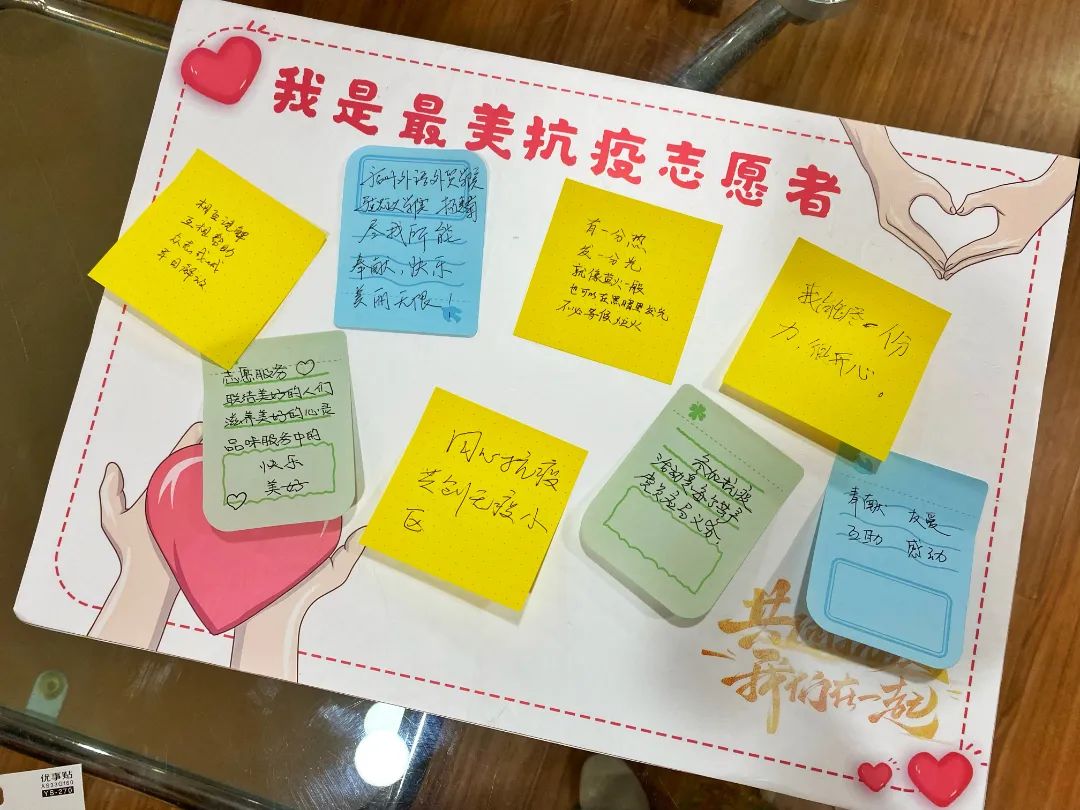 我是最美抗疫志愿者
相互谅解
互相帮助
众志成城
早日解放
尽我所能
奉献,快乐
美丽无限!
有一分热
发一分光
就像萤火一般
也可以在黑暗里发光
不必等候炬火
我能尽一份
力,很开心。
志愿服务
联结美好的人们
滋养美好的心灵
品味服务中的
快乐
美好
同心抗疫
共创无疫小
区
参加抗疫
活动是每个公民
应尽责任与义务
奉献 友爱
互助 感动
共
我们在一起
优事贴
YS-270